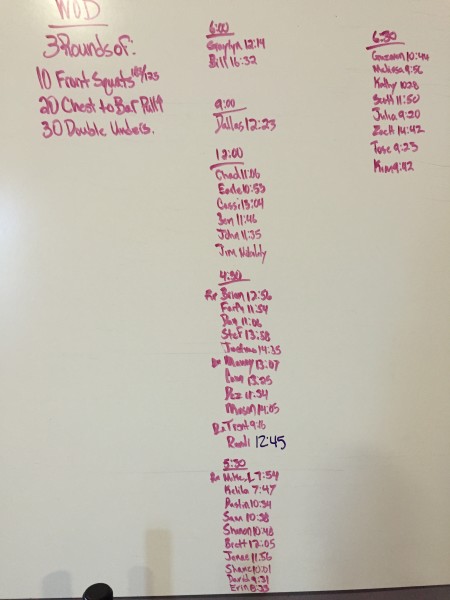 WOD
3 Rounds of:
10 Front Squats 185/125
20 Chest to Bar Pull↑
30 Double Unders.
6:00
12:14
Bill 16:32
9:00
Dallas 12:23
12:00
Chad 11:06
10:53
Cassi 13:04
Ben 11:46
John 11:35
Jim
4:30
Rx Brian 12:56
11:54
11:06
Stef 13:58
14:35
Rx Manny 13:07
13:25
Pez 11:34
Mason 14:05
Rx Trent 9:15
12:45
5:30
Rx Mike L 7:54
7:47
Dustin 10:34
Sam 10:38
Shanon 10:48
Brett 12:05
11:56
Shane 10:01
David 9:31
Erin 8:33
6:30
10:40
Melissa 9:56
Kathy 10:28
Scott 11:50
Julia 9:20
Zach 14:42
Jose 9:23
Kim 9:42